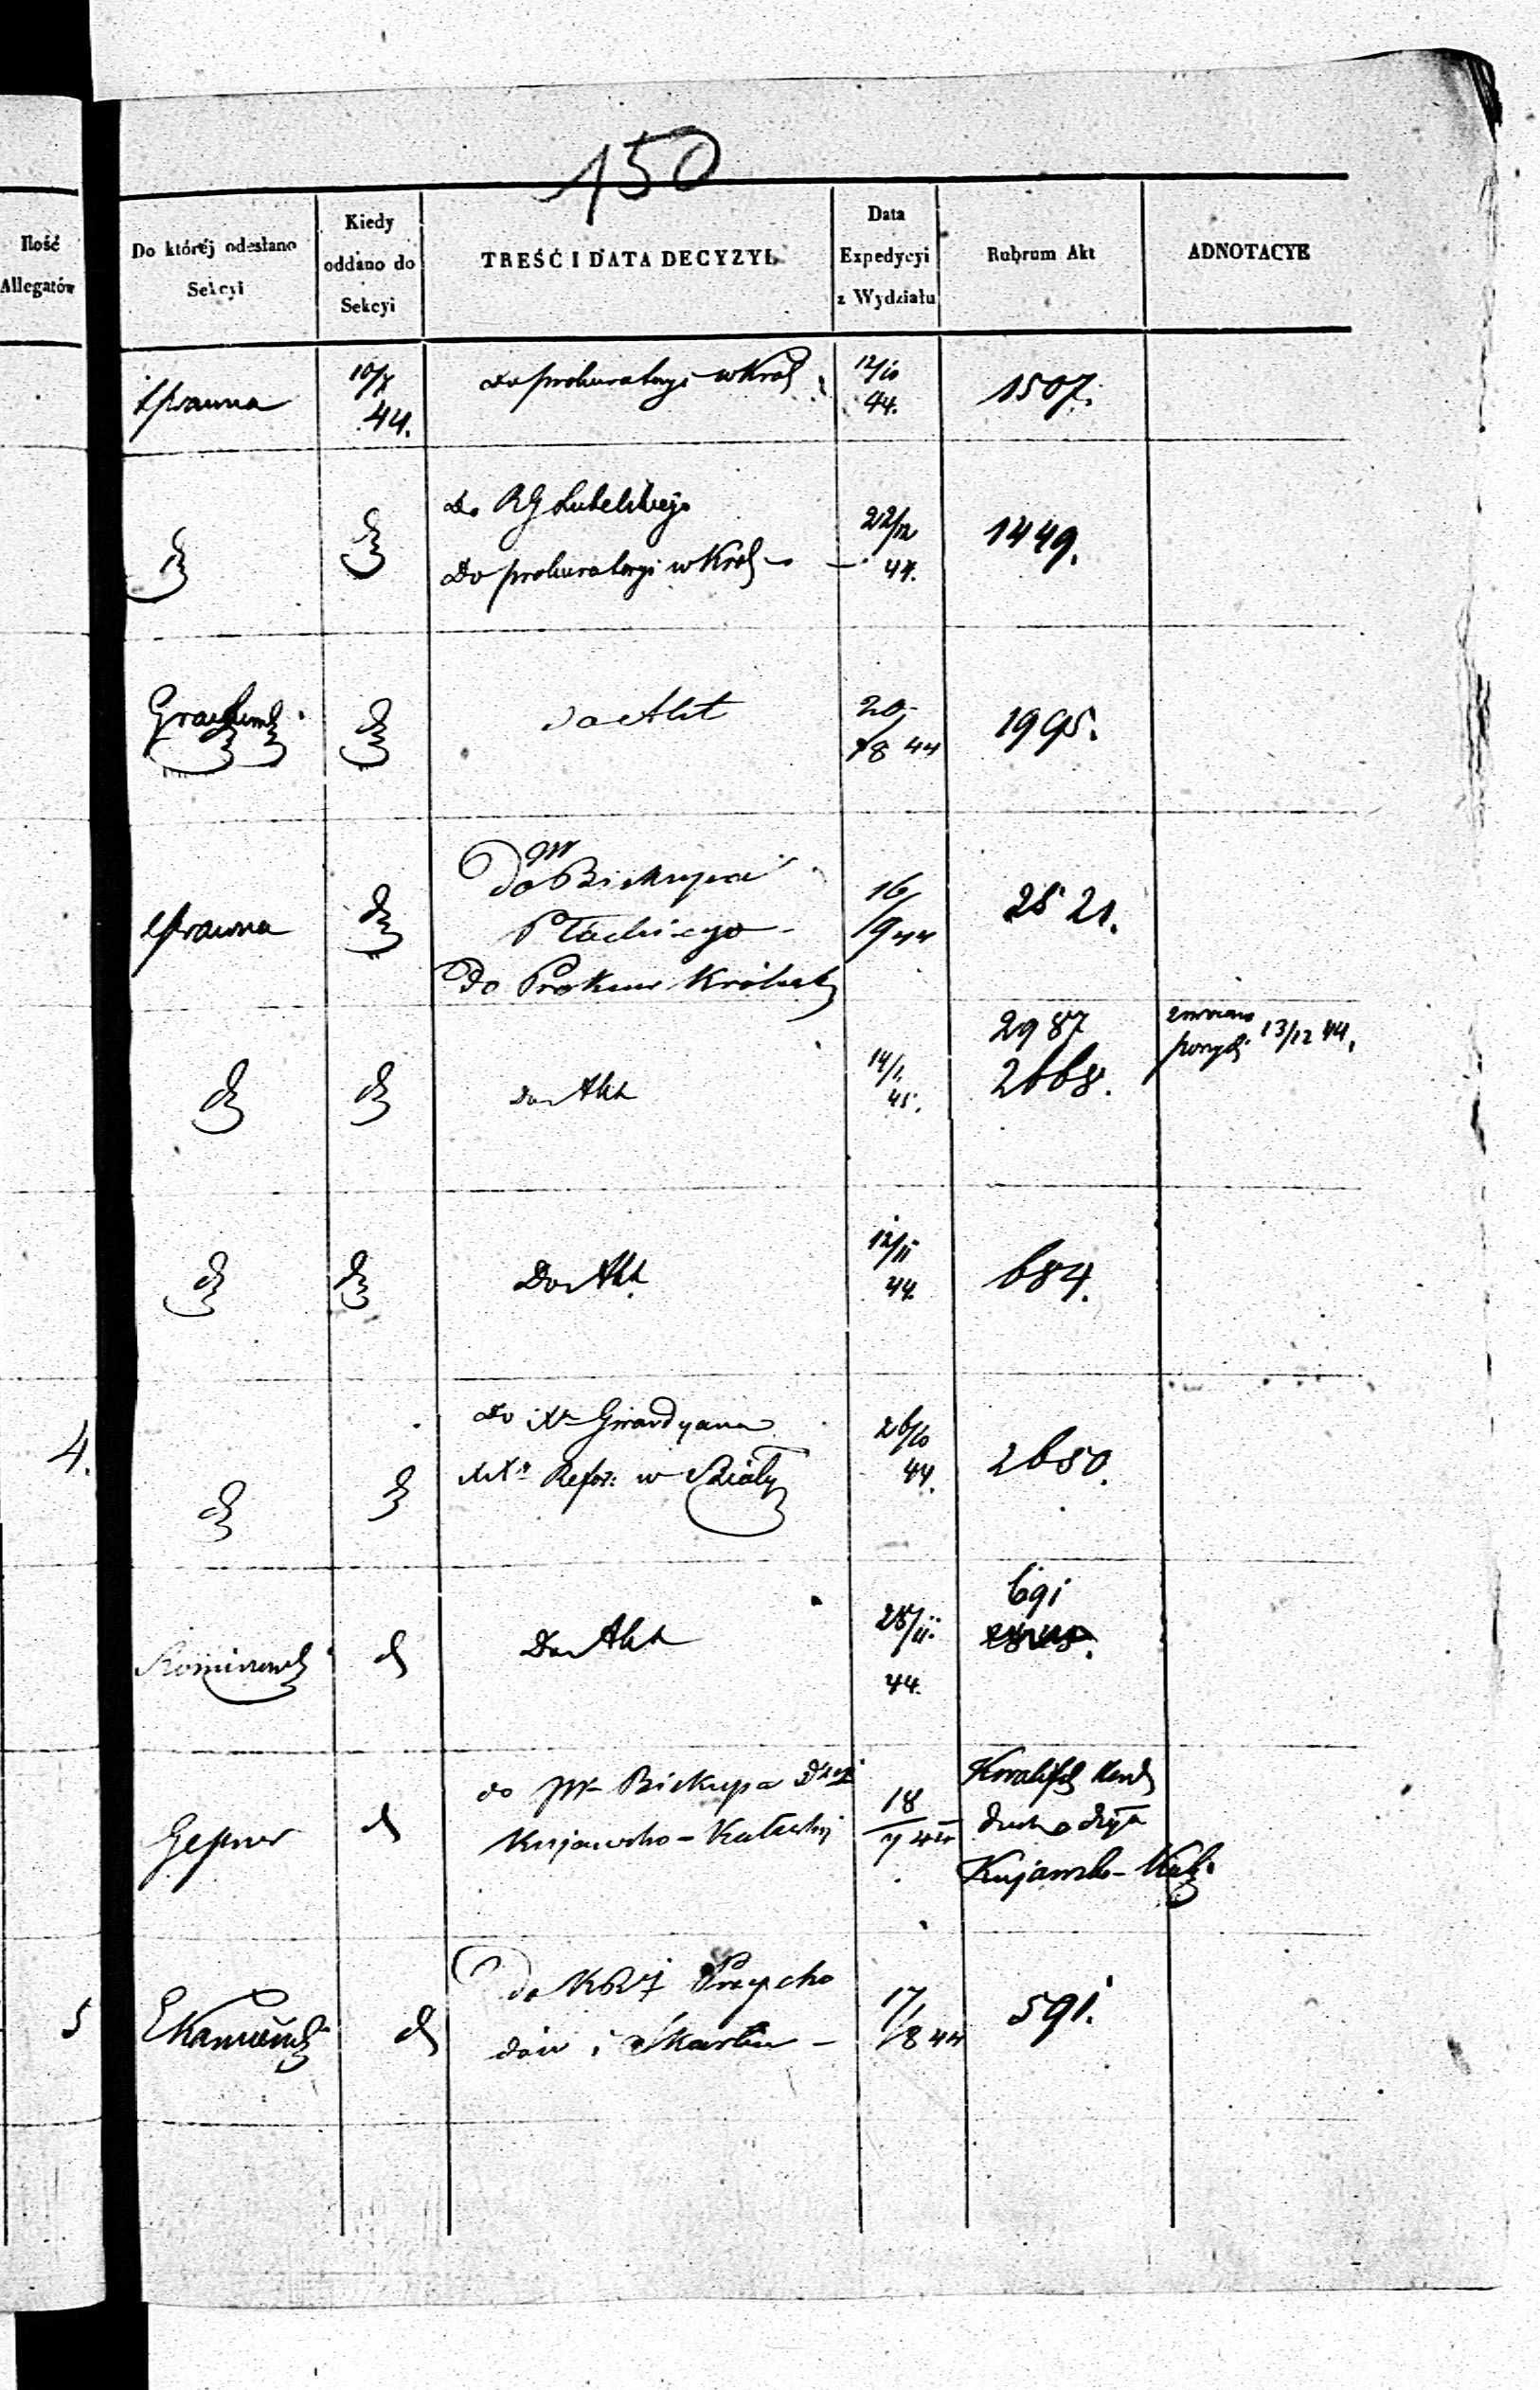 150
Ilość
Allegatów
Do któréj odesłano
Sekcyi
Kiedy
oddano do
Sekcyi
TREŚĆ I DATA DECYZYI.
Data
Expedycyi
z Wydziału
Rubrum Akt
ADNOTACYE
Prawna
10/7
44.
Do prokuratoryi w Król
12/10
44.
1507.
Do RG Lubelskiego
Do prokuratoryi w Król
22/12
44.
1449.
do Akt
20
/8 44
1995.
Prawna
JW
Do Biskupa
Płockiego
Do Prokur Królest
16
/9 44
2521.
Do Akt
14/1
45.
2987
2668.
13/12 44.
Do Akt
12/11
44.
684.
4.
do Xa Gwardyana
XXn Refor: w Biały
26/10
44.
2650.
Do Akt
28/11.
44.
691
Gepner
do JW Biskupa Dyec
Kujawsko-Kaliskiej
18
/7 44
Kujawsko-Kali
5
do KRz Przycho
dów i Skarbu
17
/8 44
591.